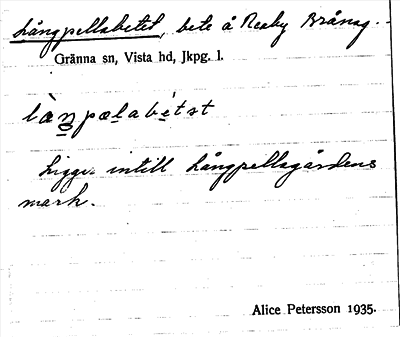 Långpellabetet, bete å Reaby Brånag.
Gränna sn, Vista hd, Jkpg. l.
làŋpælabétət
Ligger intill Långpellagårdens
mark.
Alice Petersson 1935.